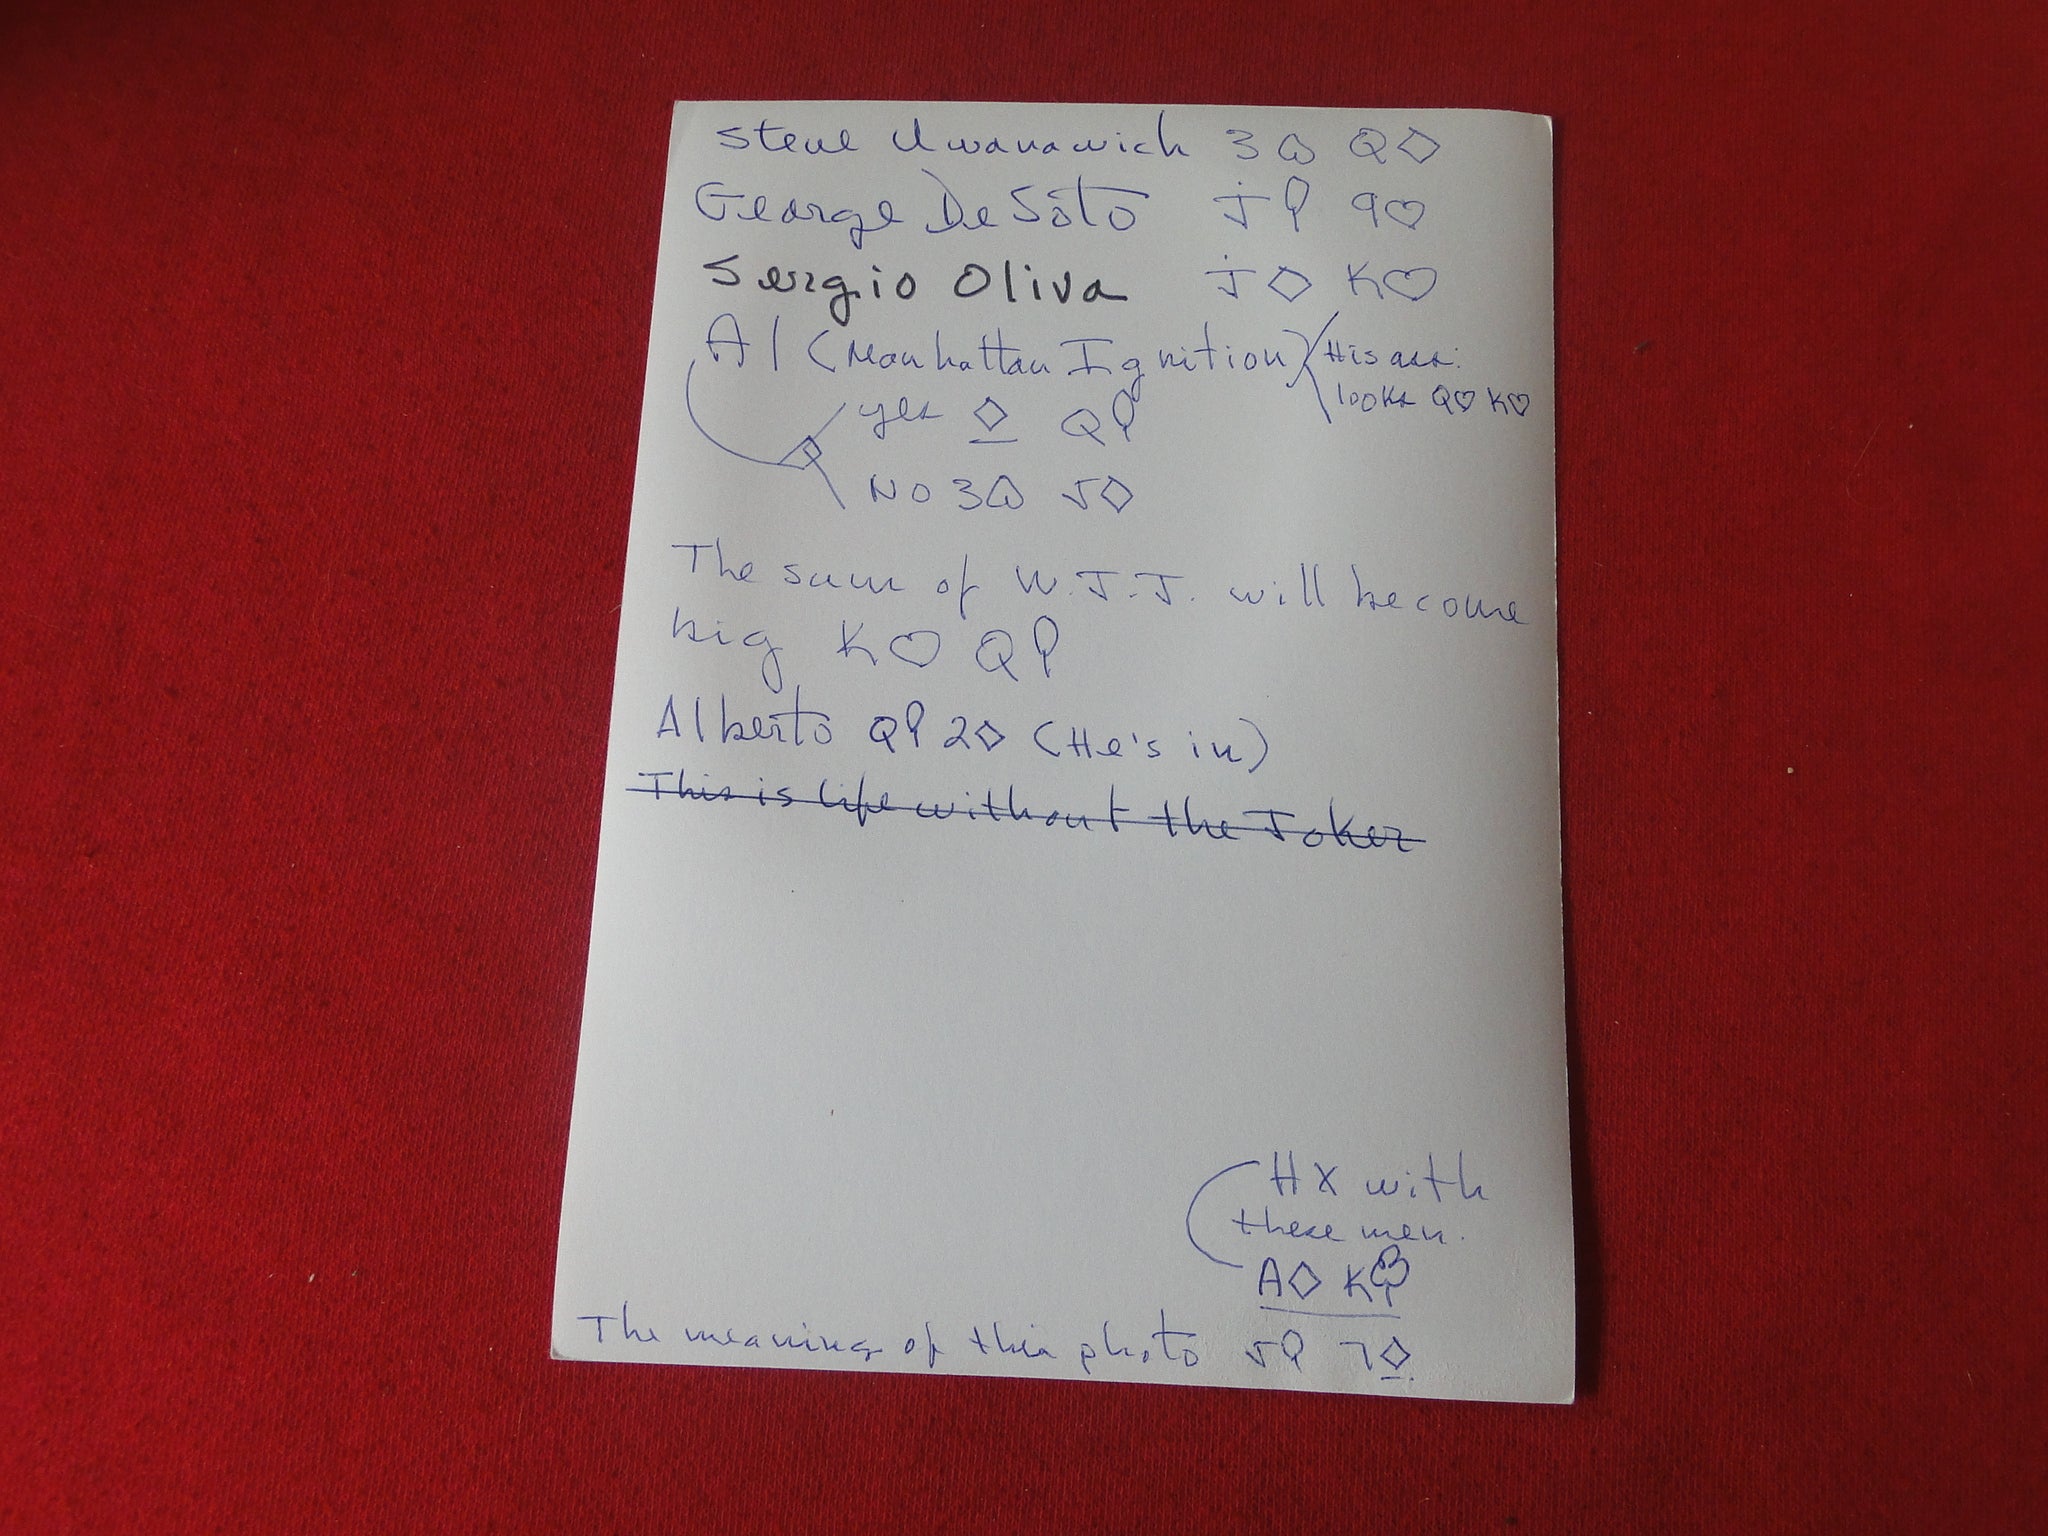 Steve Uwanawich 3♤ Q♢
George De Soto J♧ 9♡
Sergio Oliva J♢ K♡
Al (Manhattan Ignition) His ass:
looks Q♡ K♡
yes ♢ Q♧
NO 3♤ 5♢
The sum of W.J.J. will become
big K♡ Q♧
Alberto Q♧ 2♢ (He's in)
This is life without the Joker
HX with
these men.
A♢ K♧
The meaning of this photo 5♧ 7♢